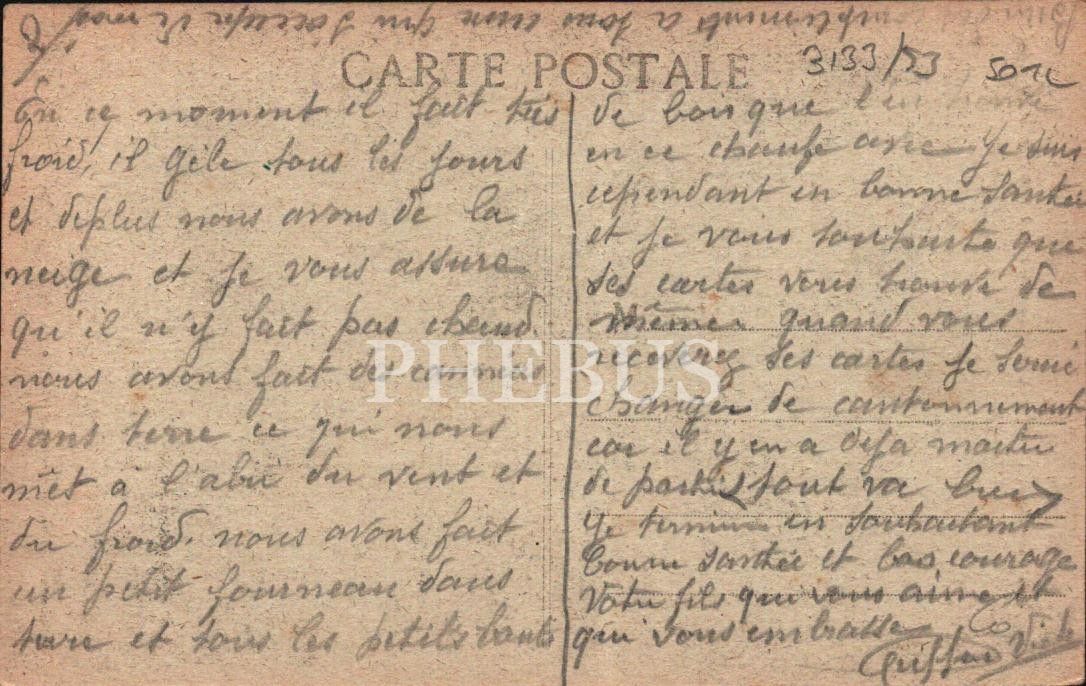 CARTE POSTALE
3133/53
En ce moment il fait très
froid, il gèle tous les jours
et deplus nous avons de la
neige et je vous assure
qu'il n'y fait pas chaud.
nous avons fait des
dans terre ce qui nous
met à l'abri du vent et
du froid. nous avons fait
un petit fourneau dans
terre et tous les petits bouts
de bois que l'on
en ce chaufe avec je suis
cependant en bonne santée
et je vous souhaite que
ses cartes vous trouve de
même. quand vous
receverez ses cartes je serai
changer de cantonnement
car il y en a deja
de partis tout va bien
Je termine en souhaitant
bonne santée et bon courage
Votre fils qui vous aime et
qui vous embrasse
PHEBUS